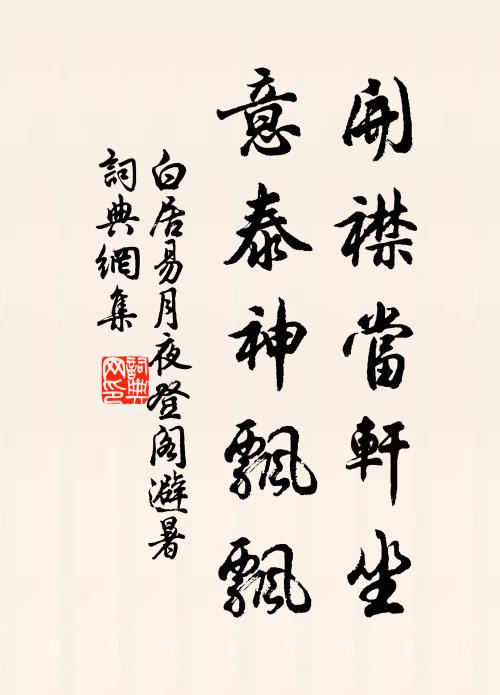 開襟當軒坐
意泰神飄飄
白居易月夜登閣避暑
詞典網集
詞典網印